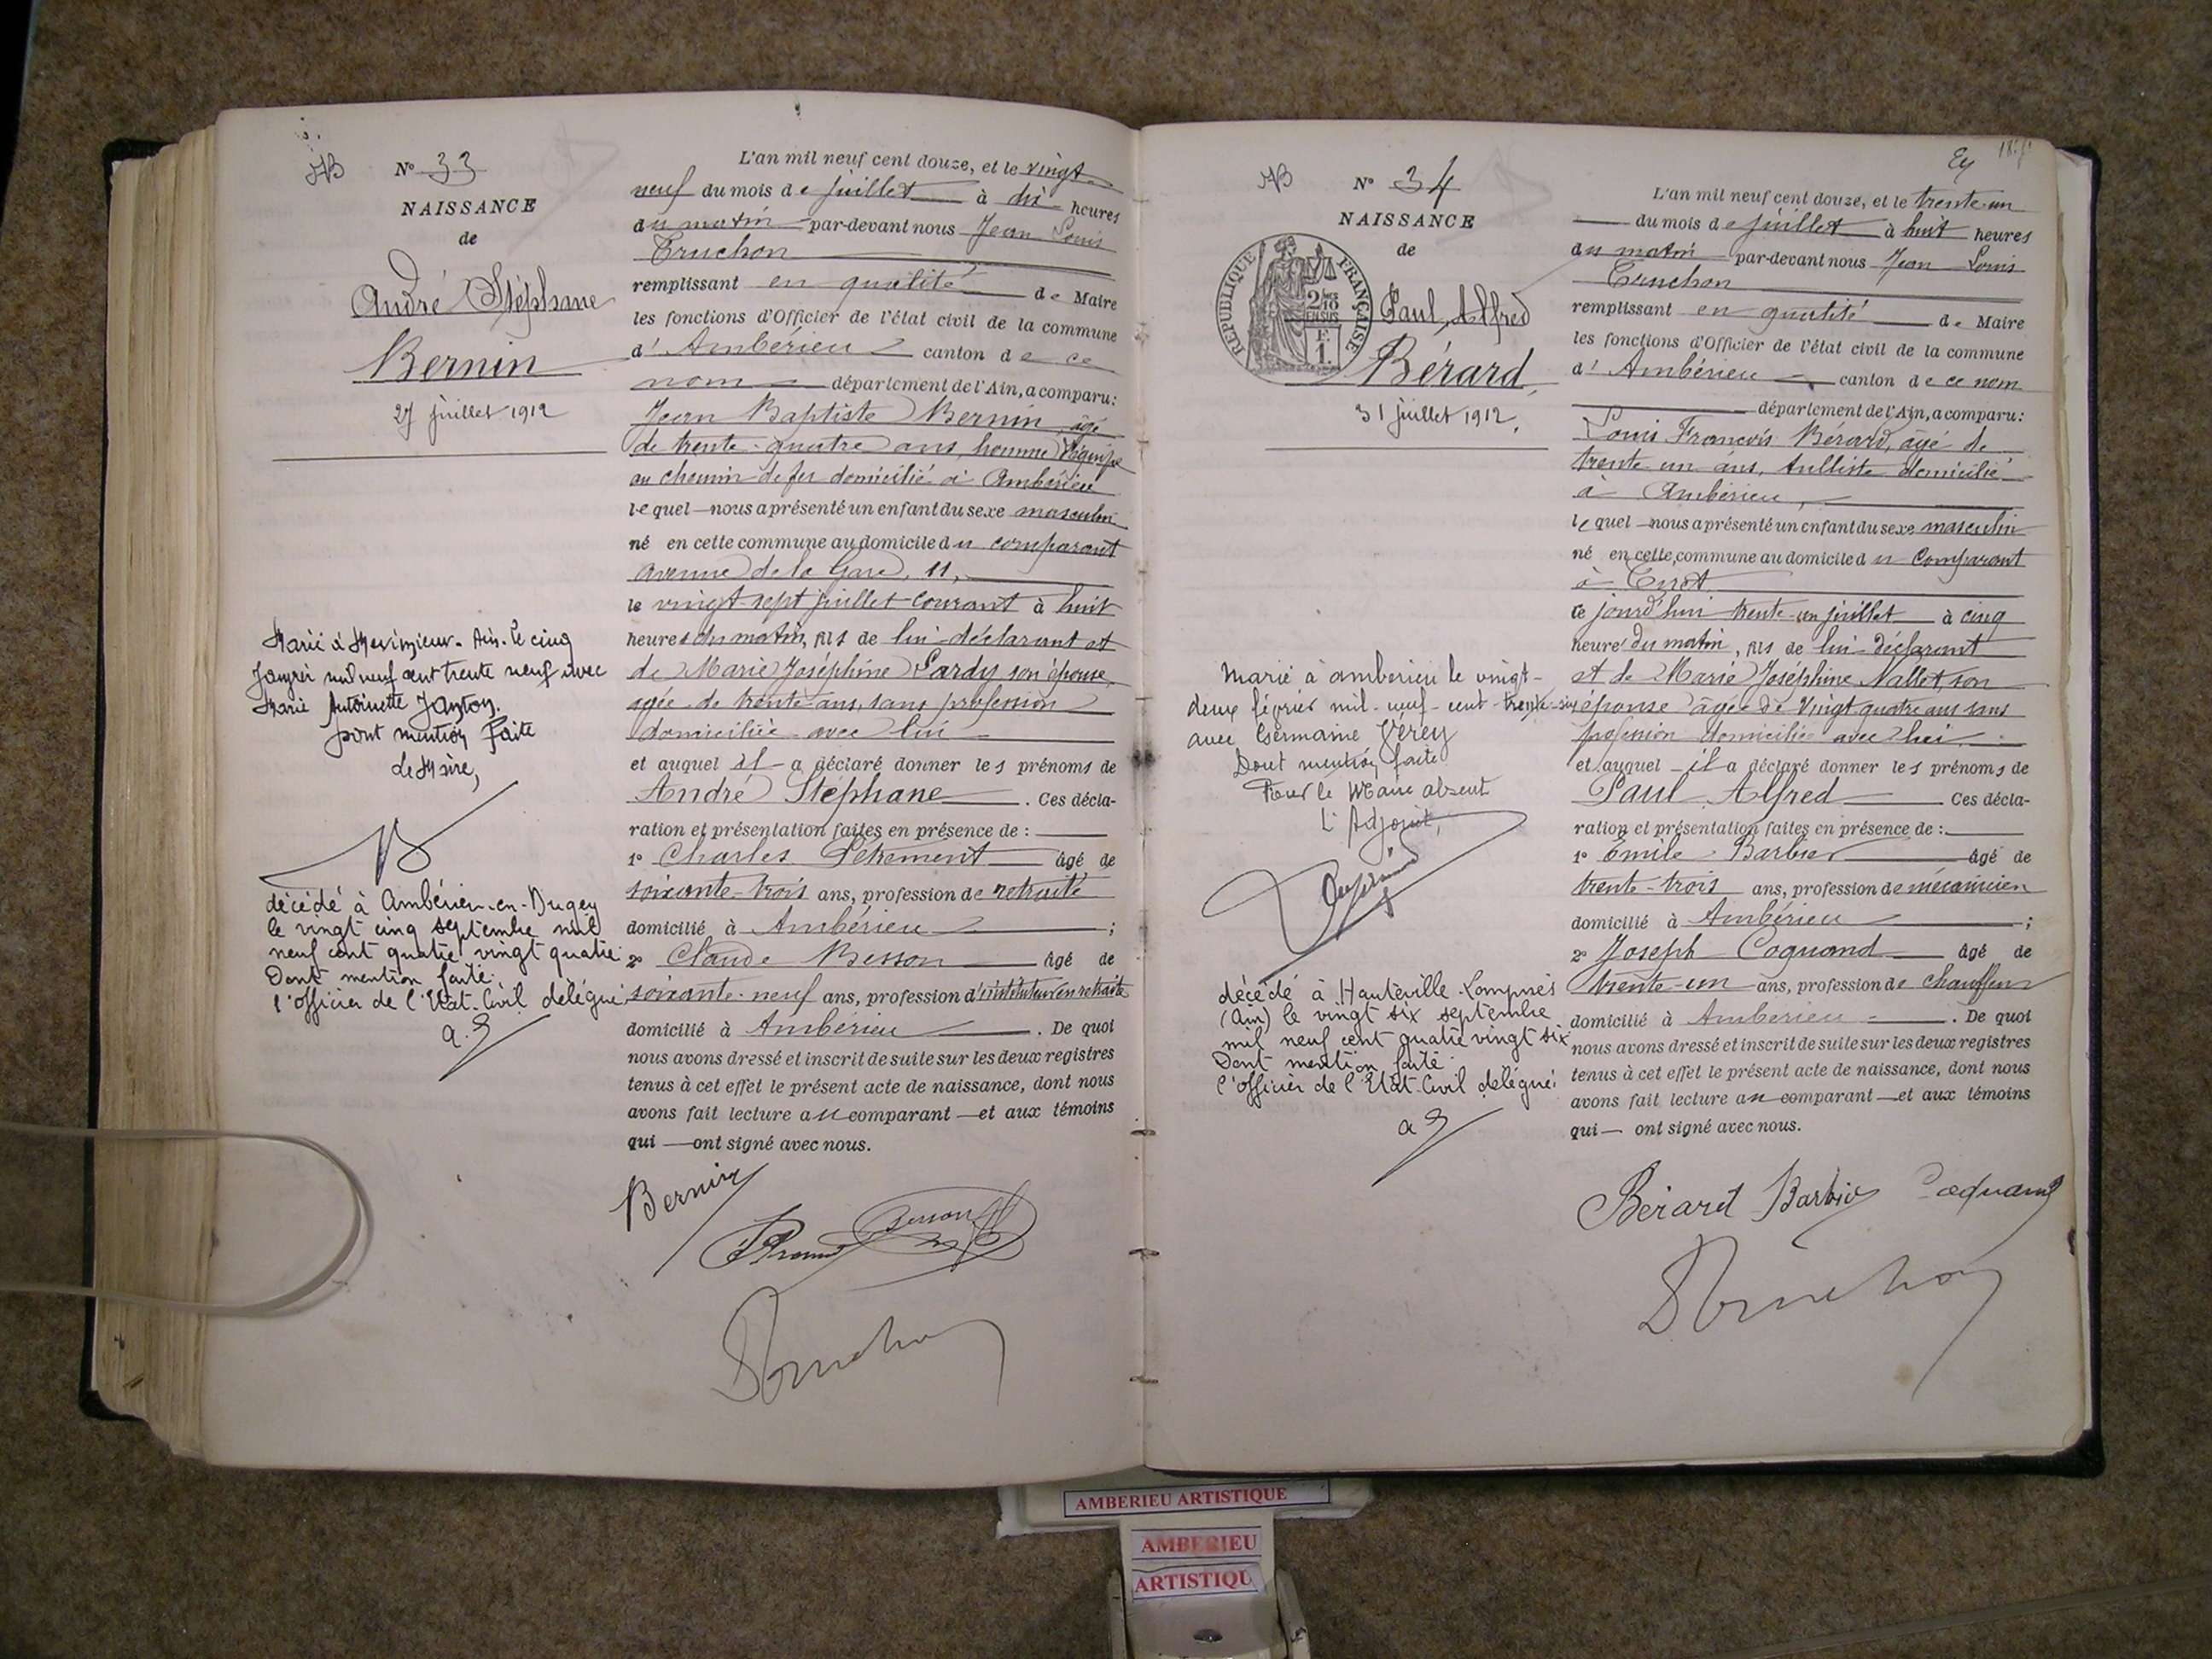 N° 33
NAISSANCE
de
André Stéphane
Bernin
27 juillet 1912
Marié à Meximieux - Ain - le cinq
Janvier mil neuf cent trente neuf avec
Marie Antoinette
dont mention faite
Le Maire,
décédé à Ambérieu-en-Bugey
le vingt cinq septembre mil
neuf cent quatre vingt quatre
Dont mention faite.
l'officier de l'Etat-Civil délégué
L'an mil neuf cent douze, et le vingt-
neuf du mois de juillet à dix heures
du matin par-devant nous Jean Louis
Truchon
remplissant en qualité de Maire
les fonctions d'Officier de l'état civil de la commune
d'Ambérieu canton de ce
nom département de l'Ain, a comparu:
Jean Baptiste Bernin, âgé
de trente-quatre ans, homme d'équipe
au chemin de fer domicilié à Ambérieu
lequel nous a présenté un enfant du sexe masculin
né en cette commune au domicile du comparant
avenue de la Gare, 11,
le vingt-sept juillet courant à huit
heures du matin, fils de lui déclarant et
de Marie Joséphine Lardy son épouse,
agée de trente ans, sans profession
domiciliée avec lui
et auquel il a déclaré donner les prénoms de
André Stéphane. Ces décla-
ration et présentation faites en présence de :
1° Charles âgé de
soixante-trois ans, profession de retraité
domicilié à Ambérieu ;
2° Claude Besson âgé de
soixante-neuf ans, profession d'instituteur en retraite
domicilié à Ambérieu. De quoi
nous avons dressé et inscrit de suite sur les deux registres
tenus à cet effet le présent acte de naissance, dont nous
avons fait lecture au comparant et aux témoins
qui ont signé avec nous.
Bernin
Besson
Truchon
N° 34
NAISSANCE
de
RÉPUBLIQUE FRANÇAISE
2/10 EN SUS
1 F.
Paul, Alfred
Bérard
31 juillet 1912.
Marié à ambérieu le vingt-
deux février mil-neuf-cent-trente-six
avec Germaine Vérey
Dont mention faite
Pour le Maire absent
L'Adjoint,
décédé à Hauteville-Lompnes
(Ain) le vingt six septembre
mil neuf cent quatre vingt six
Dont mention faite
l'officier de l'Etat-Civil délégué
L'an mil neuf cent douze, et le trente-un
du mois de juillet à huit heures
du matin par-devant nous Jean Louis
Truchon
remplissant en qualité de Maire
les fonctions d'Officier de l'état civil de la commune
d'Ambérieu canton de ce nom
département de l'Ain, a comparu:
Louis François Bérard, âgé de
trente un ans, tulliste domicilié
à Ambérieu,
lequel nous a présenté un enfant du sexe masculin
né en cette commune au domicile du comparant
à Tiret
ce jourd'hui trente-un juillet à cinq
heures du matin, fils de lui déclarant
et de Marie Joséphine Nallet, son
épouse âgée de vingt quatre ans sans
profession domiciliée avec lui.
et auquel il a déclaré donner les prénoms de
Paul Alfred Ces décla-
ration et présentation faites en présence de :
1° Emile Barbier âgé de
trente-trois ans, profession de mécanicien
domicilié à Ambérieu ;
2° Joseph Coquand âgé de
trente-un ans, profession de chauffeur
domicilié à Ambérieu. De quoi
nous avons dressé et inscrit de suite sur les deux registres
tenus à cet effet le présent acte de naissance, dont nous
avons fait lecture au comparant et aux témoins
qui ont signé avec nous.
Bérard Barbier Coquand
Truchon
AMBERIEU ARTISTIQUE
AMBERIEU
ARTISTIQU